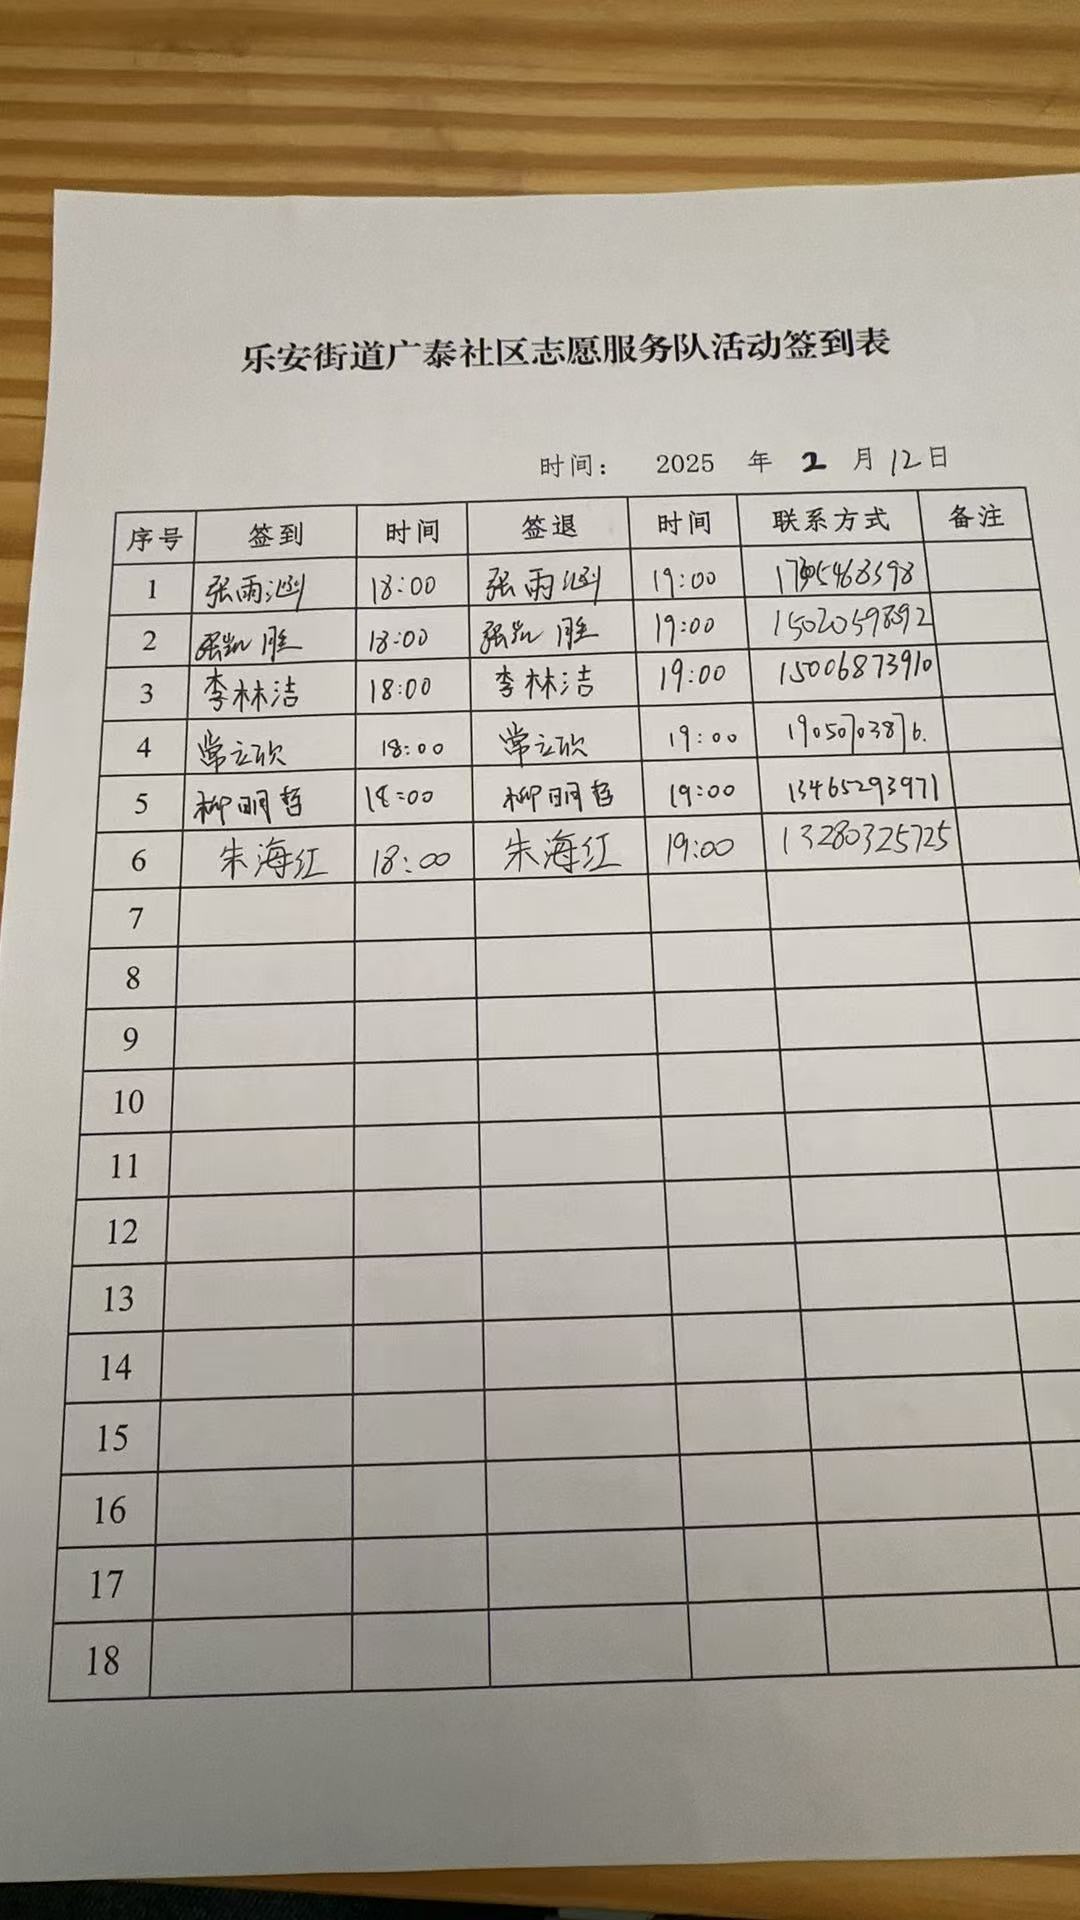 乐安街道广泰社区志愿服务队活动签到表
时间： 2025 年 2 月 12 日
序号 签到 时间 签退 时间 联系方式 备注
1 张雨涵 18:00 张雨涵 19:00
2 张凯胜 18:00 张凯胜 19:00 15020598392
3 李林洁 18:00 李林洁 19:00 15006873910
4 常立欣 18:00 常立欣 19:00 19050703876.
5 柳明哲 18:00 柳明哲 19:00 13465293971
6 朱海红 18:00 朱海红 19:00 13280325725
7
8
9
10
11
12
13
14
15
16
17
18